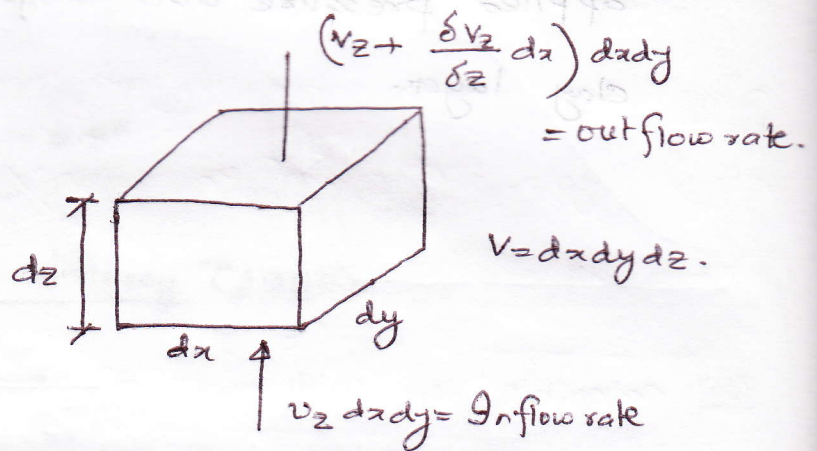 (Vz + δVz/δz dx) dxdy
= outflow rate.
V=dxdydz.
dz
dy
dx
vz dxdy= Inflow rate